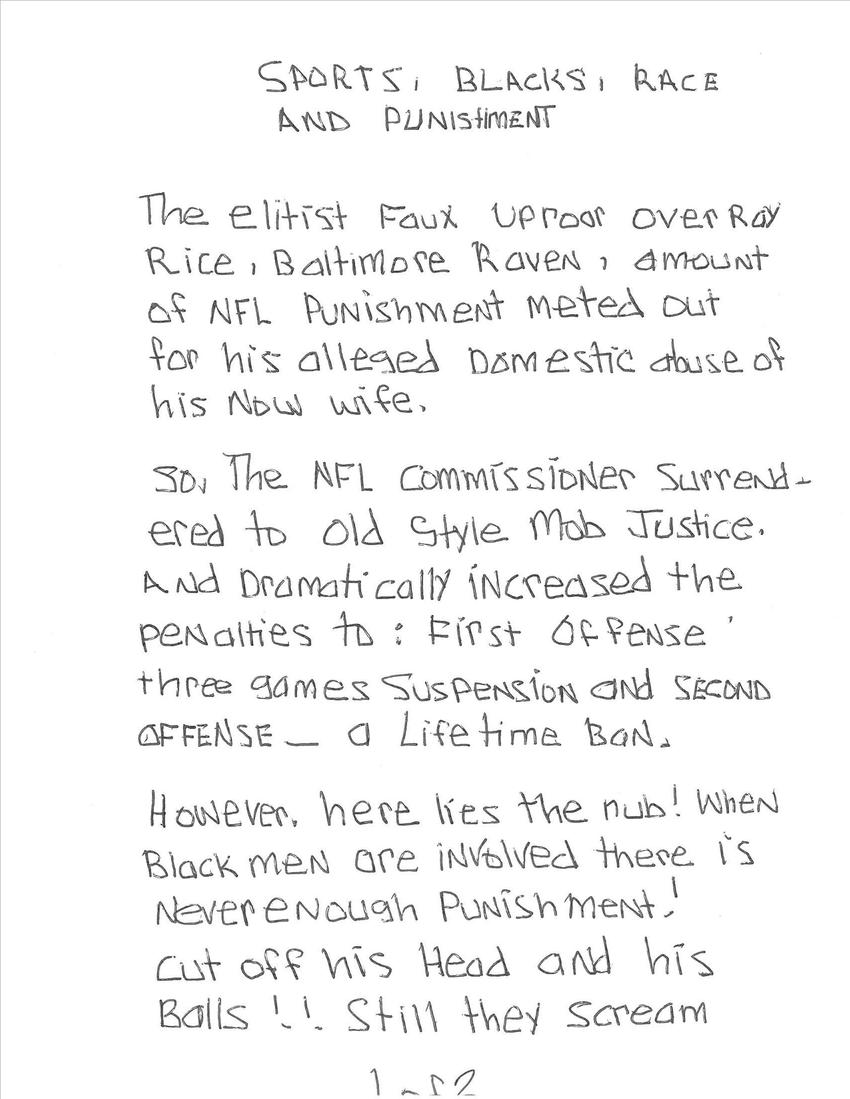 SPORTS, BLACKS, RACE
AND PUNISHMENT
The elitist Faux Uproar over Ray
Rice, Baltimore Raven, amount
of NFL Punishment meted out
for his alleged Domestic abuse of
his Now wife.
So, The NFL Commissioner Surrend-
ered to old Style Mob Justice.
And Dramatically increased the
penalties to: First Offense '
three games Suspension and SECOND
OFFENSE — a Lifetime Ban.
However, here lies the nub! When
Black men are involved there is
Never enough Punishment!
Cut off his Head and his
Balls!! Still they scream
1 of 2